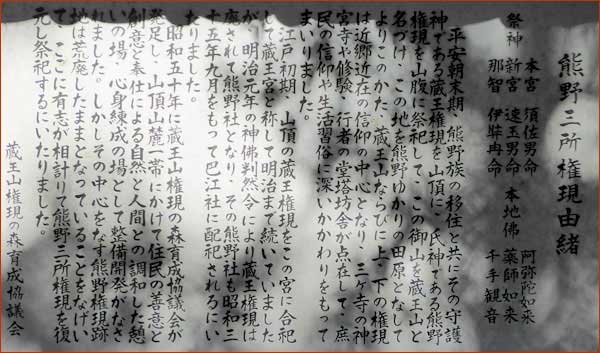 熊野三所権現由緒
祭神 本宮 須佐男命 本地佛 阿弥陀如来
新宮 速玉男命 薬師如来
那智 伊弉冉命 千手観音
平安朝末期、熊野族の移住と共にその守護
神である蔵王権現を山頂に、氏神である熊野
権現を山腹に祭祀して、この御山を蔵王山と
名づけ、この地を熊野ゆかりの田原となして
よりこのかた、蔵王山ならびに上、下の権現
は近郷近在の信仰の中心となり、三ヶ寺の神
宮寺や修験、行者の堂塔坊舎が点在して、庶
民の信仰や生活習俗に深いかかわりをもって
まいりました。
江戸初期、山頂の蔵王権現をこの宮に合祀
して蔵王宮と称して明治まで続いていました
が、明治元年の神佛判然令により蔵王権現は
廃されて熊野社となり、その熊野社も昭和三
十五年九月をもって巴江社に配祀されるにい
たりました。
昭和五十年に蔵王山権現の森育成協議会が
発足し、山頂山麓一帯にかけて住民の善意と
創意と奉仕による自然と人間との調和した憩
いの場、心身練成の場として整備開発がなさ
れました。しかしその中心をなす熊野権現跡
地は荒廃したままとなっていることをなげい
て、ここに有志が相計りて熊野三所権現を復
元し祭祀するにいたりました。
蔵王山権現の森育成協議会